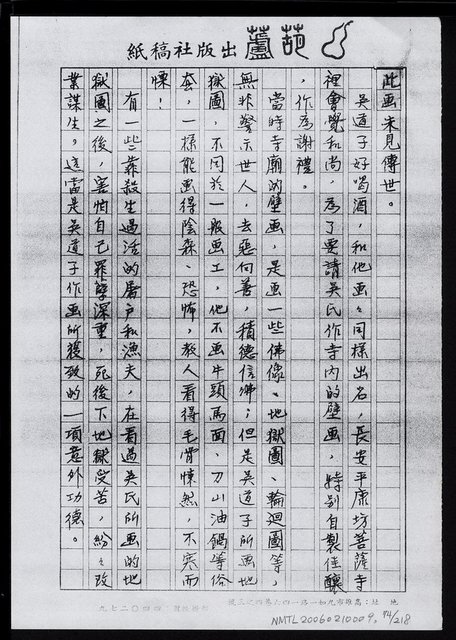 葫蘆出版社稿紙
此画未見傳世。
吳道子好喝酒,和他画々同樣出名,長安平康坊菩薩寺
裡會覺和尚,為了要請吳氏作寺內的壁画,特別自製佳釀
,作為謝禮。
當時寺廟的壁画,是画一些佛像、地獄圖、輪迴圖等,
無非警示世人,去惡向善,積德信佛;但是吳道子所画地
獄圖,不同於一般画工,他不画牛頭馬面、刀山油鍋等俗
套,一樣能画得陰森、恐怖,教人看得毛骨悚然,不寒而
慄!
有一些靠殺生過活的屠户和漁夫,在看過吳氏所画的地
獄圖之後,害怕自己罪孽深重,死後下地獄受苦,紛々改
業謀生。這當是吳道子作画所獲致的一項意外功德。
NMTL20060210009, 74/218